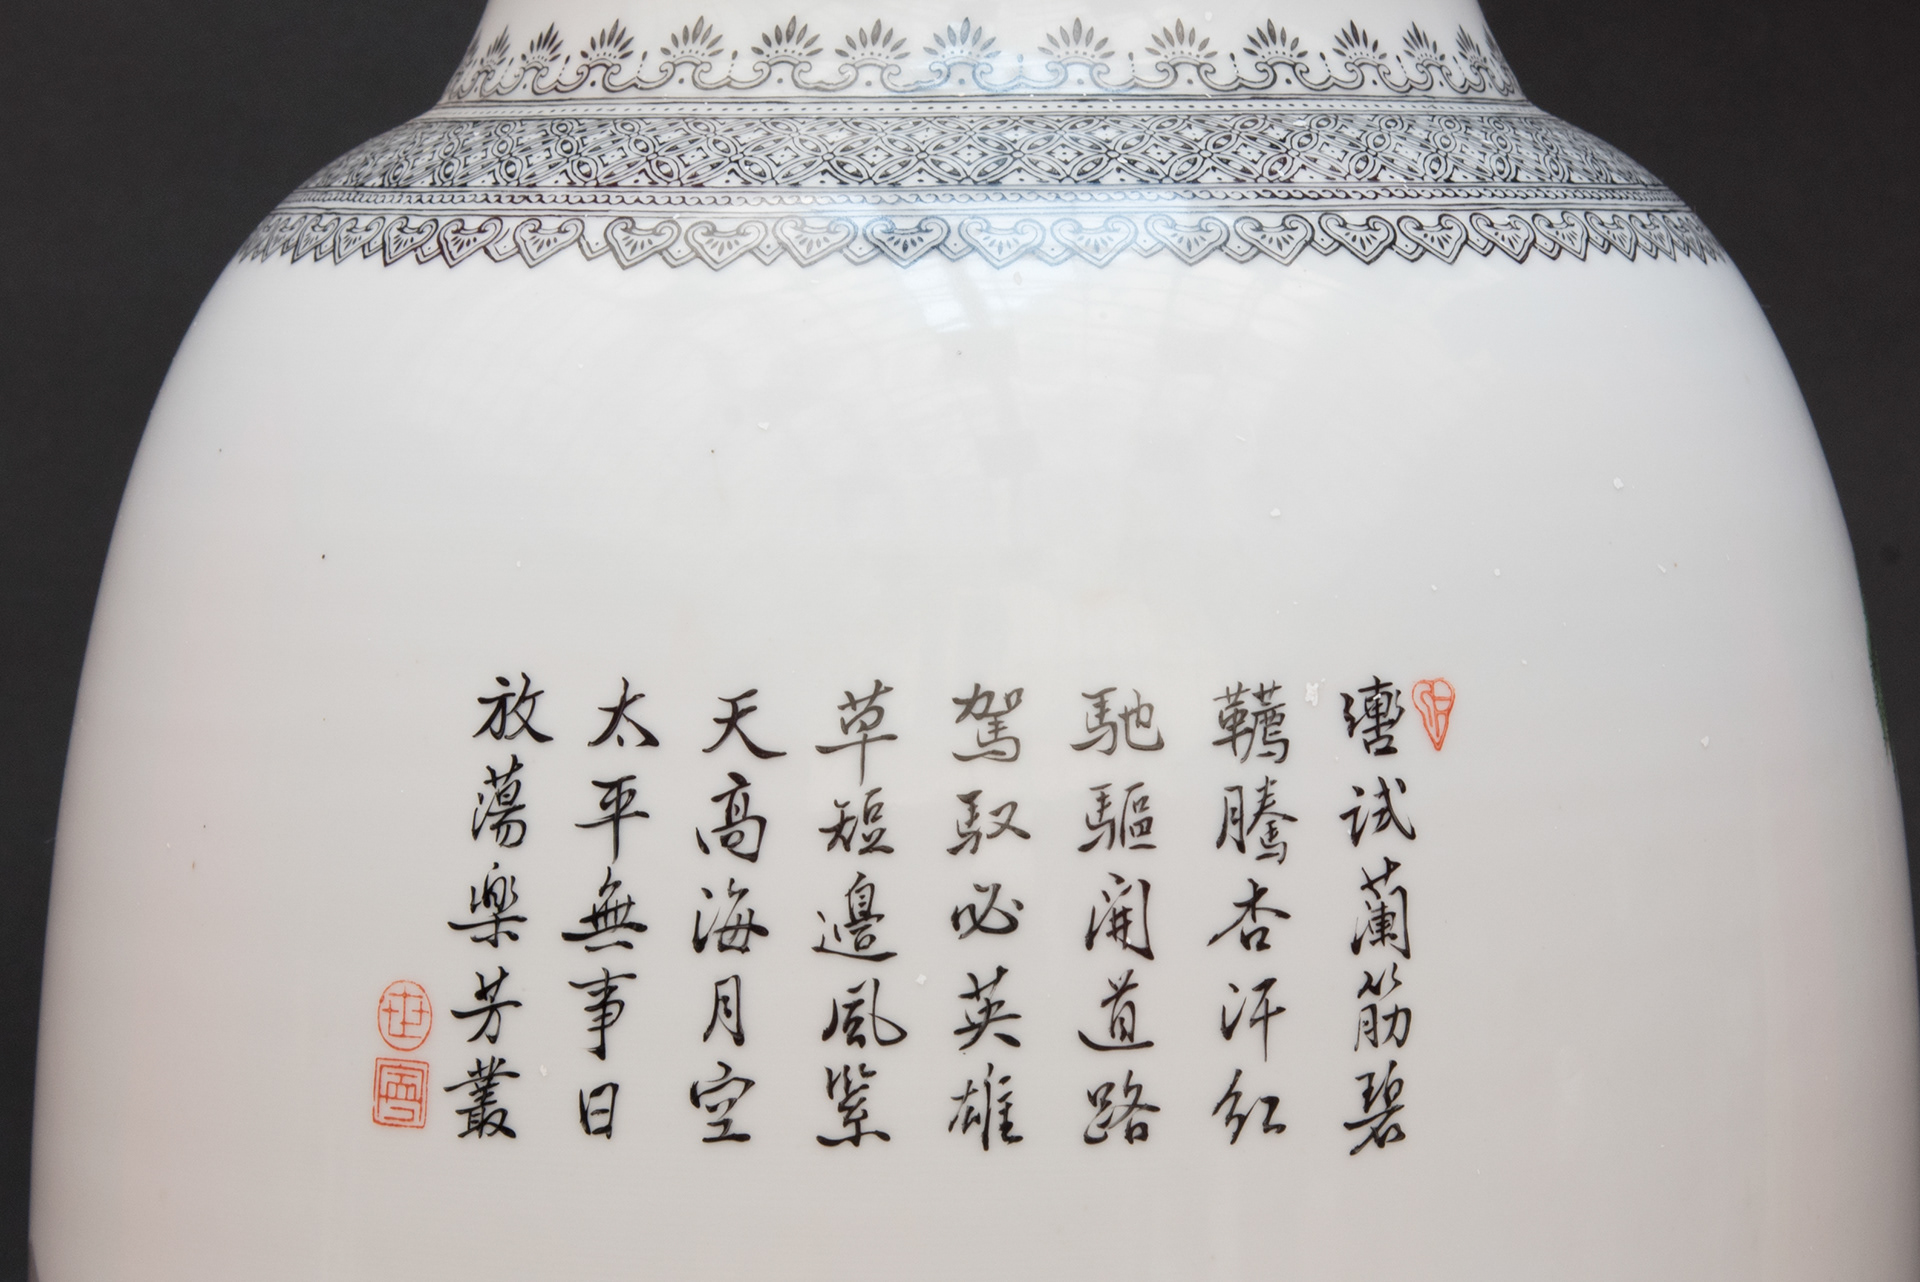 轡試蘭筋碧
韉騰杏汗紅
馳驅開道路
駕馭必英雄
草短邊風緊
天高海月空
太平無事日
放蕩樂芳叢